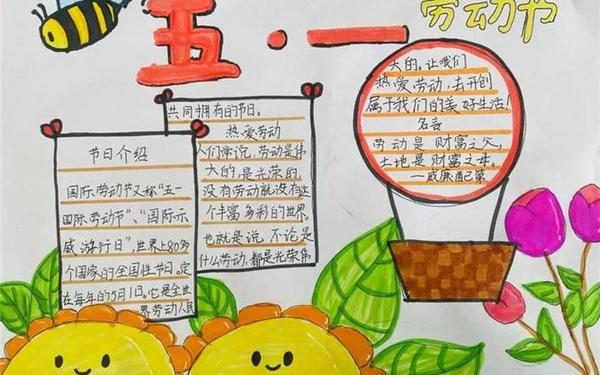 五·一
劳动节
节日介绍
国际劳动节又称"五一
国际劳动节"、"国际示
威游行日",世界上80多
个国家的全国性节日。定
在每年的5月1日。它是全世
界劳动人民
共同拥有的节日。
热爱劳动
人们常说,劳动是伟
大的,是光荣的。
没有劳动就没有这
个丰富多彩的世界,
也就是说,不论是
什么劳动,都是光荣伟
大的。让我们
热爱劳动,去开创
属于我们的美好生活!
名言
劳动是财富之父,
土地是财富之母。
—威廉·配第